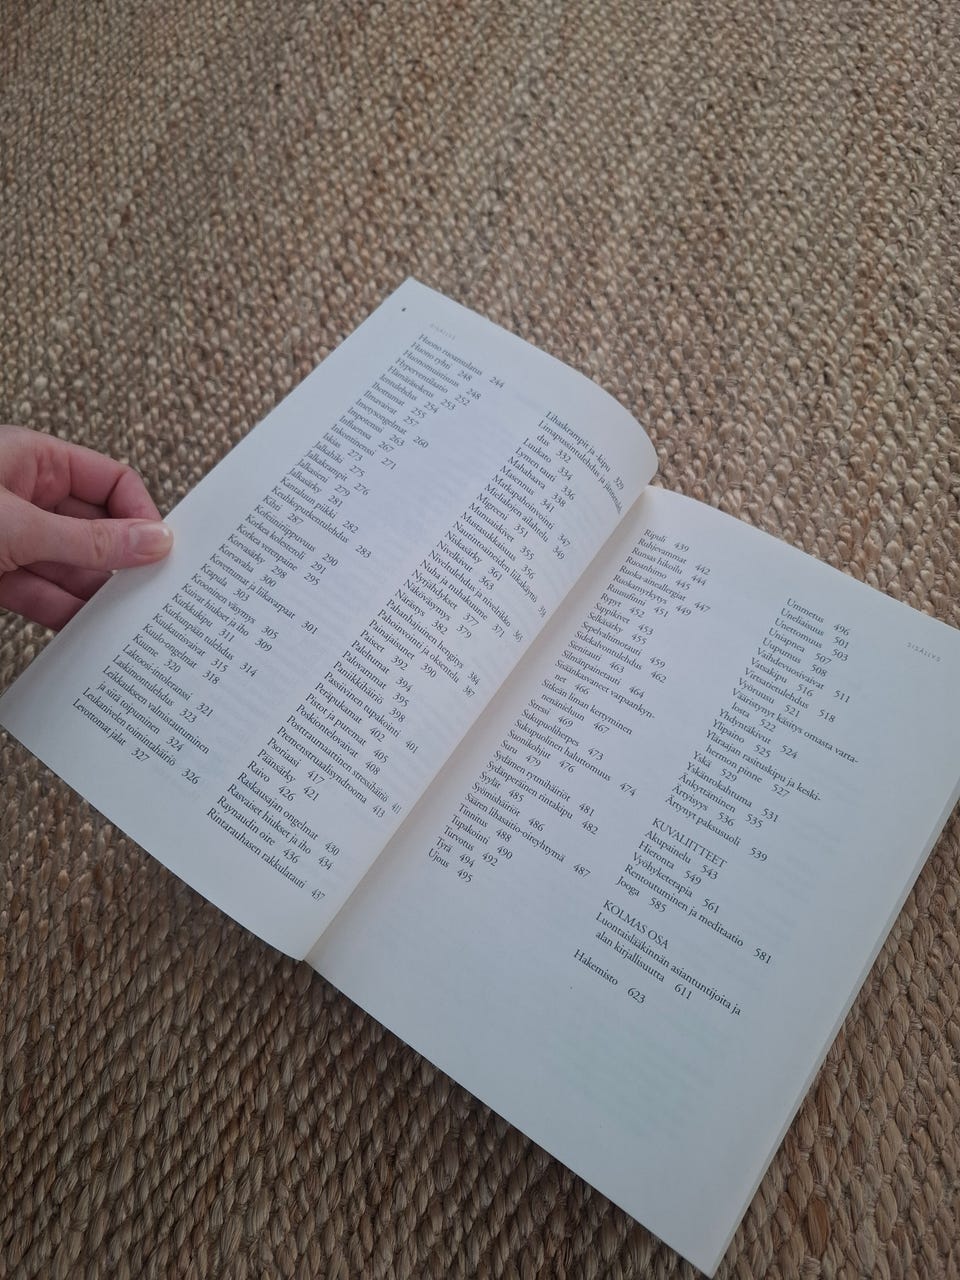 8
SISÄLLYS
Huono ruoansulatus 244
Huono ryhti 248
Huonomuistisuus 248
Hyperventilaatio 252
Hämäräsokeus 253
Ientulehdus 254
Ihottumat 255
Ilmavaivat 257
Imetysongelmat 260
Impotenssi 263
Influenssa 267
Inkontinenssi 271
Iskias 273
Jalkahiki 275
Jalkakrampit 276
Jalkasieni 279
Jalkasärky 281
Kantaluun piikki 282
Keuhkoputkentulehdus 283
Kihti 287
Kofeiiniriippuvuus 290
Korkea kolesteroli 291
Korkea verenpaine 295
Korvasärky 298
Korvavaha 300
Kovettumat ja liikavarpaat 301
Krapula 303
Krooninen väsymys 305
Kuivat hiukset ja iho 309
Kurkkukipu 311
Kurkunpään tulehdus 314
Kuukautisvaivat 315
Kuulo-ongelmat 318
Kuume 320
Laktoosi-intoleranssi 321
Laskimontulehdus 323
Leikkauksen valmistautuminen
ja siitä toipuminen 324
Leukanivelen toimintahäiriö 326
Levottomat jalat 327
Lihaskrampit ja -kipu 329
Limapussintulehdus ja
dus 332
Luukato 334
Lymen tauti 336
Mahahaava 338
Masennus 341
Matkapahoinvointi 347
Mielialojen ailahtelu 349
Migreeni 351
Munuaiskivet 355
Mustasukkaisuus 356
Nautintoaineiden liikakäyttö
Niskasärky 361
Nivelkivut 363
Nivelrikko
Nuha ja nuhakuume 371
Nyrjähdykset 377
Näkövaivat 379
Närästys 382
Pahanhajuinen hengitys 384
Pahoinvointi ja oksentelu 387
Painajaisunet 390
Paiseet 392
Paleltumat 394
Palovammat 395
Paniikkihäiriö 398
Passiivinen tupakointi 401
Peräpukamat 402
Pistot ja puremat 405
Poskiontelovaivat 408
Posttraumaattinen stressihäiriö 411
Premenstruaalisyndrooma 413
Psoriasi 417
Päänsärky 421
Raivo 426
Raskausajan ongelmat 430
Rasvaiset hiukset ja iho 434
Raynaudin oire 436
Rintarauhasen rakkulatauti 437
SISÄLLYS
Ripuli 439
Ruhjevammat 442
Runsas hikoilu 444
Ruoanhimo 445
Ruoka-aineallergiat 447
Ruokamyrkytys 449
Ruusufinni 451
Rypyt 452
Sappikivet 453
Selkäsärky 455
Sepelvaltimotauti 459
Sidekalvontulehdus 462
Sieninfektiot 463
Silmänpainetauti 464
Sisäänkasvaneet varpaankyn-
net 466
Sitkeän liman kerryminen
nenänieluun 467
Stressi 469
Sukupuoliherpes 473
Sukupuolinen haluttomuus 474
Suonikohjut 476
Suru 479
Sydämen rytmihäiriöt 481
Sydänperäinen rintakipu 482
Syylät 485
Syömishäiriöt 486
Säären lihasaitio-oireyhtymä 487
Tinnitus 488
Tupakointi 490
Turvotus 492
Tyrä 494
Ujous 495
Ummetus 496
Uneliaisuus 501
Unettomuus 503
Uniapnea 507
Uupumus 508
Vaihdevuosivaivat 511
Vatsakipu 516
Virtsatietulehdus 518
Vyöruusu 521
Vääristynyt käsitys omasta varta-
losta 522
Yhdyntäkivut 524
Ylipaino 525
Yläraajan rasituskipu ja keski-
hermon pinne 527
Yskä 529
Yskänrokahtuma 531
Änkyttäminen 535
Ärtyisyys 536
Ärtynyt paksusuoli 539
KUVALIITTEET
Akupainelu 543
Hieronta 549
Vyöhyketerapia 561
Rentoutuminen ja meditaatio 581
Jooga 585
KOLMAS OSA
Luontaislääkinnän asiantuntijoita ja
alan kirjallisuutta 611
Hakemisto 623